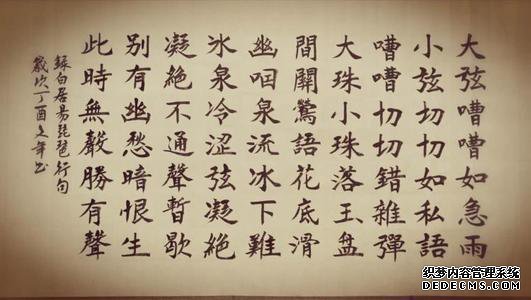 大弦嘈嘈如急雨
小弦切切如私語
嘈嘈切切錯雜彈
大珠小珠落玉盘
間關鶯語花底滑
幽咽泉流冰下難
氷泉冷涩弦凝絶
凝絶不通聲暫歇
別有幽愁暗恨生
此時無聲勝有聲
錄白居易琵琶行句
歲次丁酉之年书
织梦内容管理系统
DEDECMS.COM